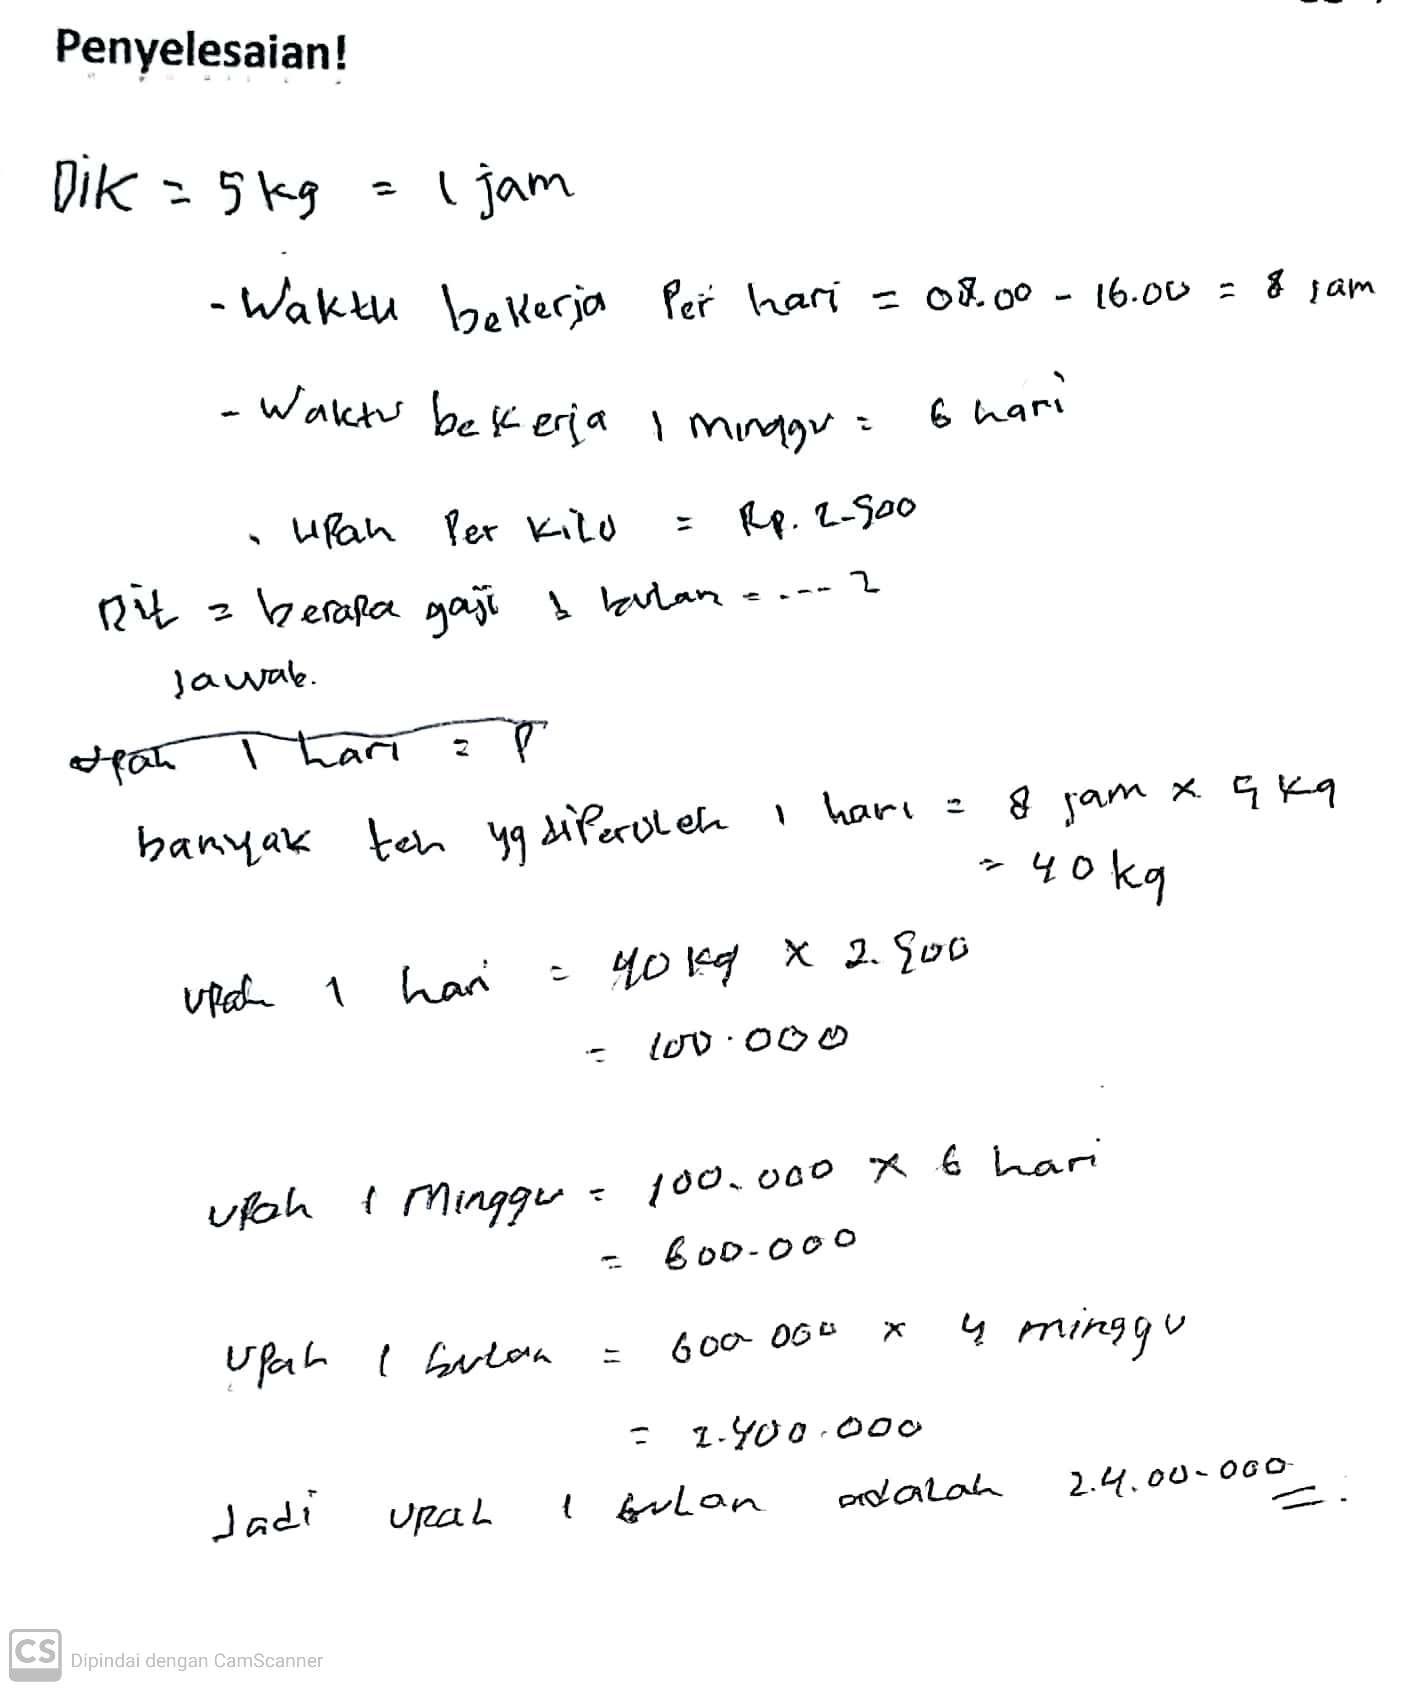 Penyelesaian!
Dik = 5 kg = 1 jam
- Waktu bekerja Per hari = 08.00 - 16.00 = 8 jam
- Waktu bekerja 1 minggu = 6 hari
- upah Per kilo = Rp. 2.500
Dit = berapa gaji 1 bulan = .... ?
Jawab.
upah 1 hari = P
banyak teh yg diperoleh 1 hari = 8 jam x 5 kg
= 40 kg
upah 1 hari = 40 kg x 2.500
= 100.000
upah 1 Minggu = 100.000 x 6 hari
= 600.000
upah 1 bulan = 600 000 x 4 minggu
= 2.400.000
Jadi upah 1 bulan adalah 2.4.00.000
CS Dipindai dengan CamScanner